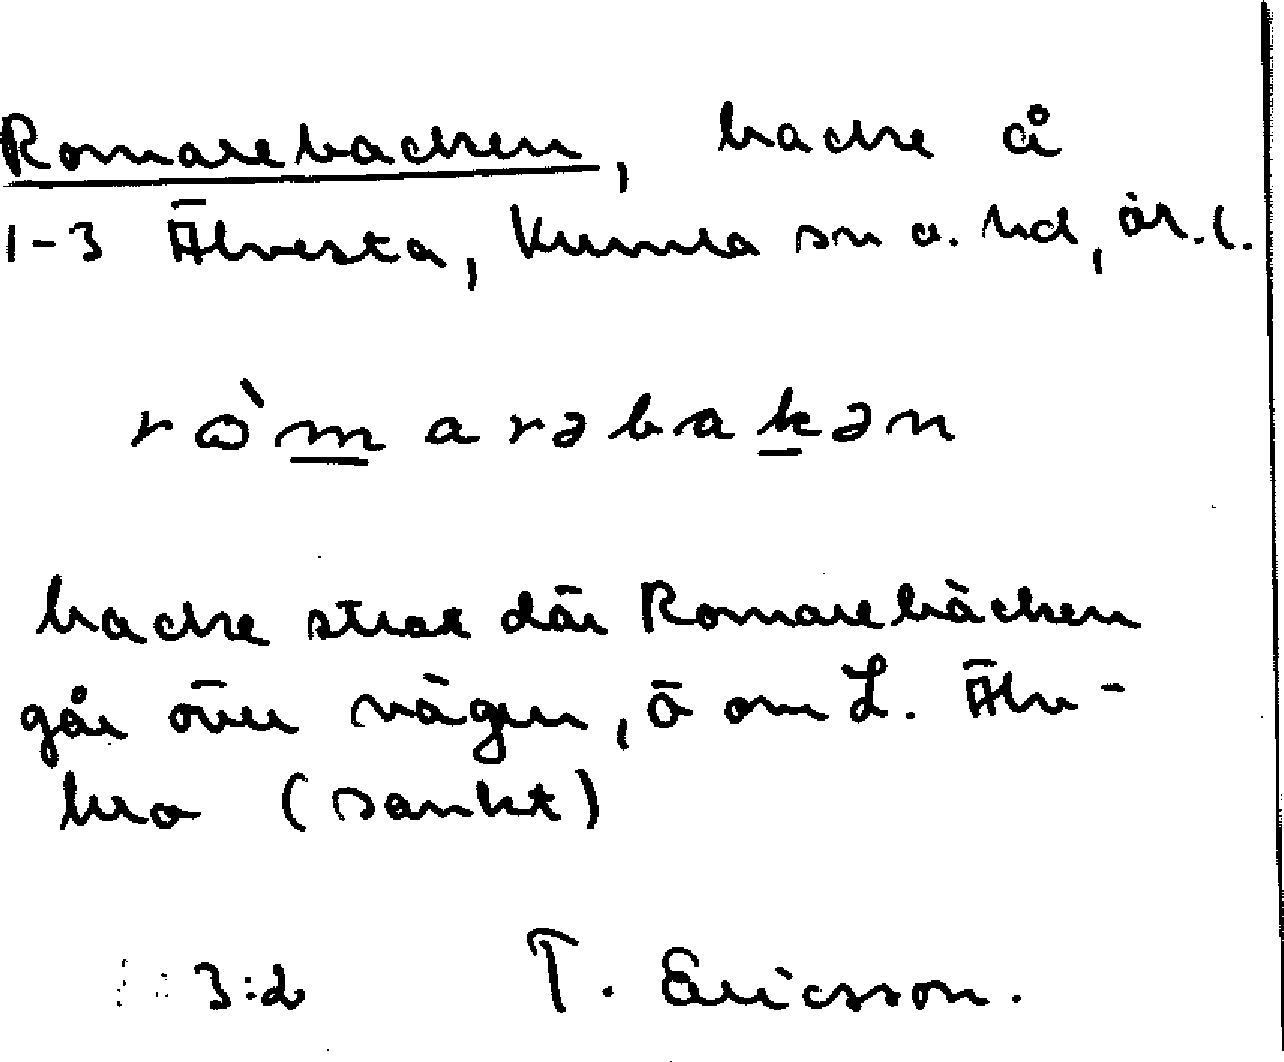 Romarebacken, backe å
1-3 Älvesta, Kumla sn o. hd, ör. l.
ròmarəbakən
backe strax där Romarebäcken
går över vägen, ö om L. Älv-
bro (sankt)
3:2 T. Ericsson.